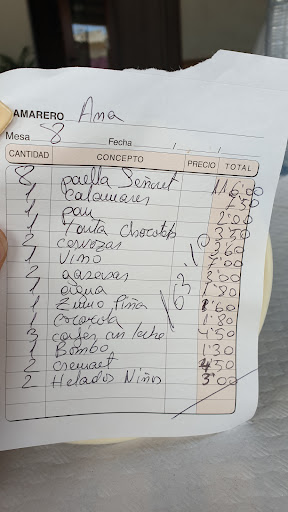 AMARERO Ana
Mesa 8 Fecha / /
CANTIDAD CONCEPTO PRECIO TOTAL
8 paella Señoret 116'00
1 Calamares 7'50
1 pan 2'00
1 Tarta chocolate 3'50
2 cervezas 3'60
1 Vino
2 2'00
1 agua 1'80
1 Zumo Piña 1'60
1 cocacola 1'80
3 cafes con leche 4'50
1 Bombo 1'30
2 cremaet 4'50
2 Helados Niños 3'00
163'10